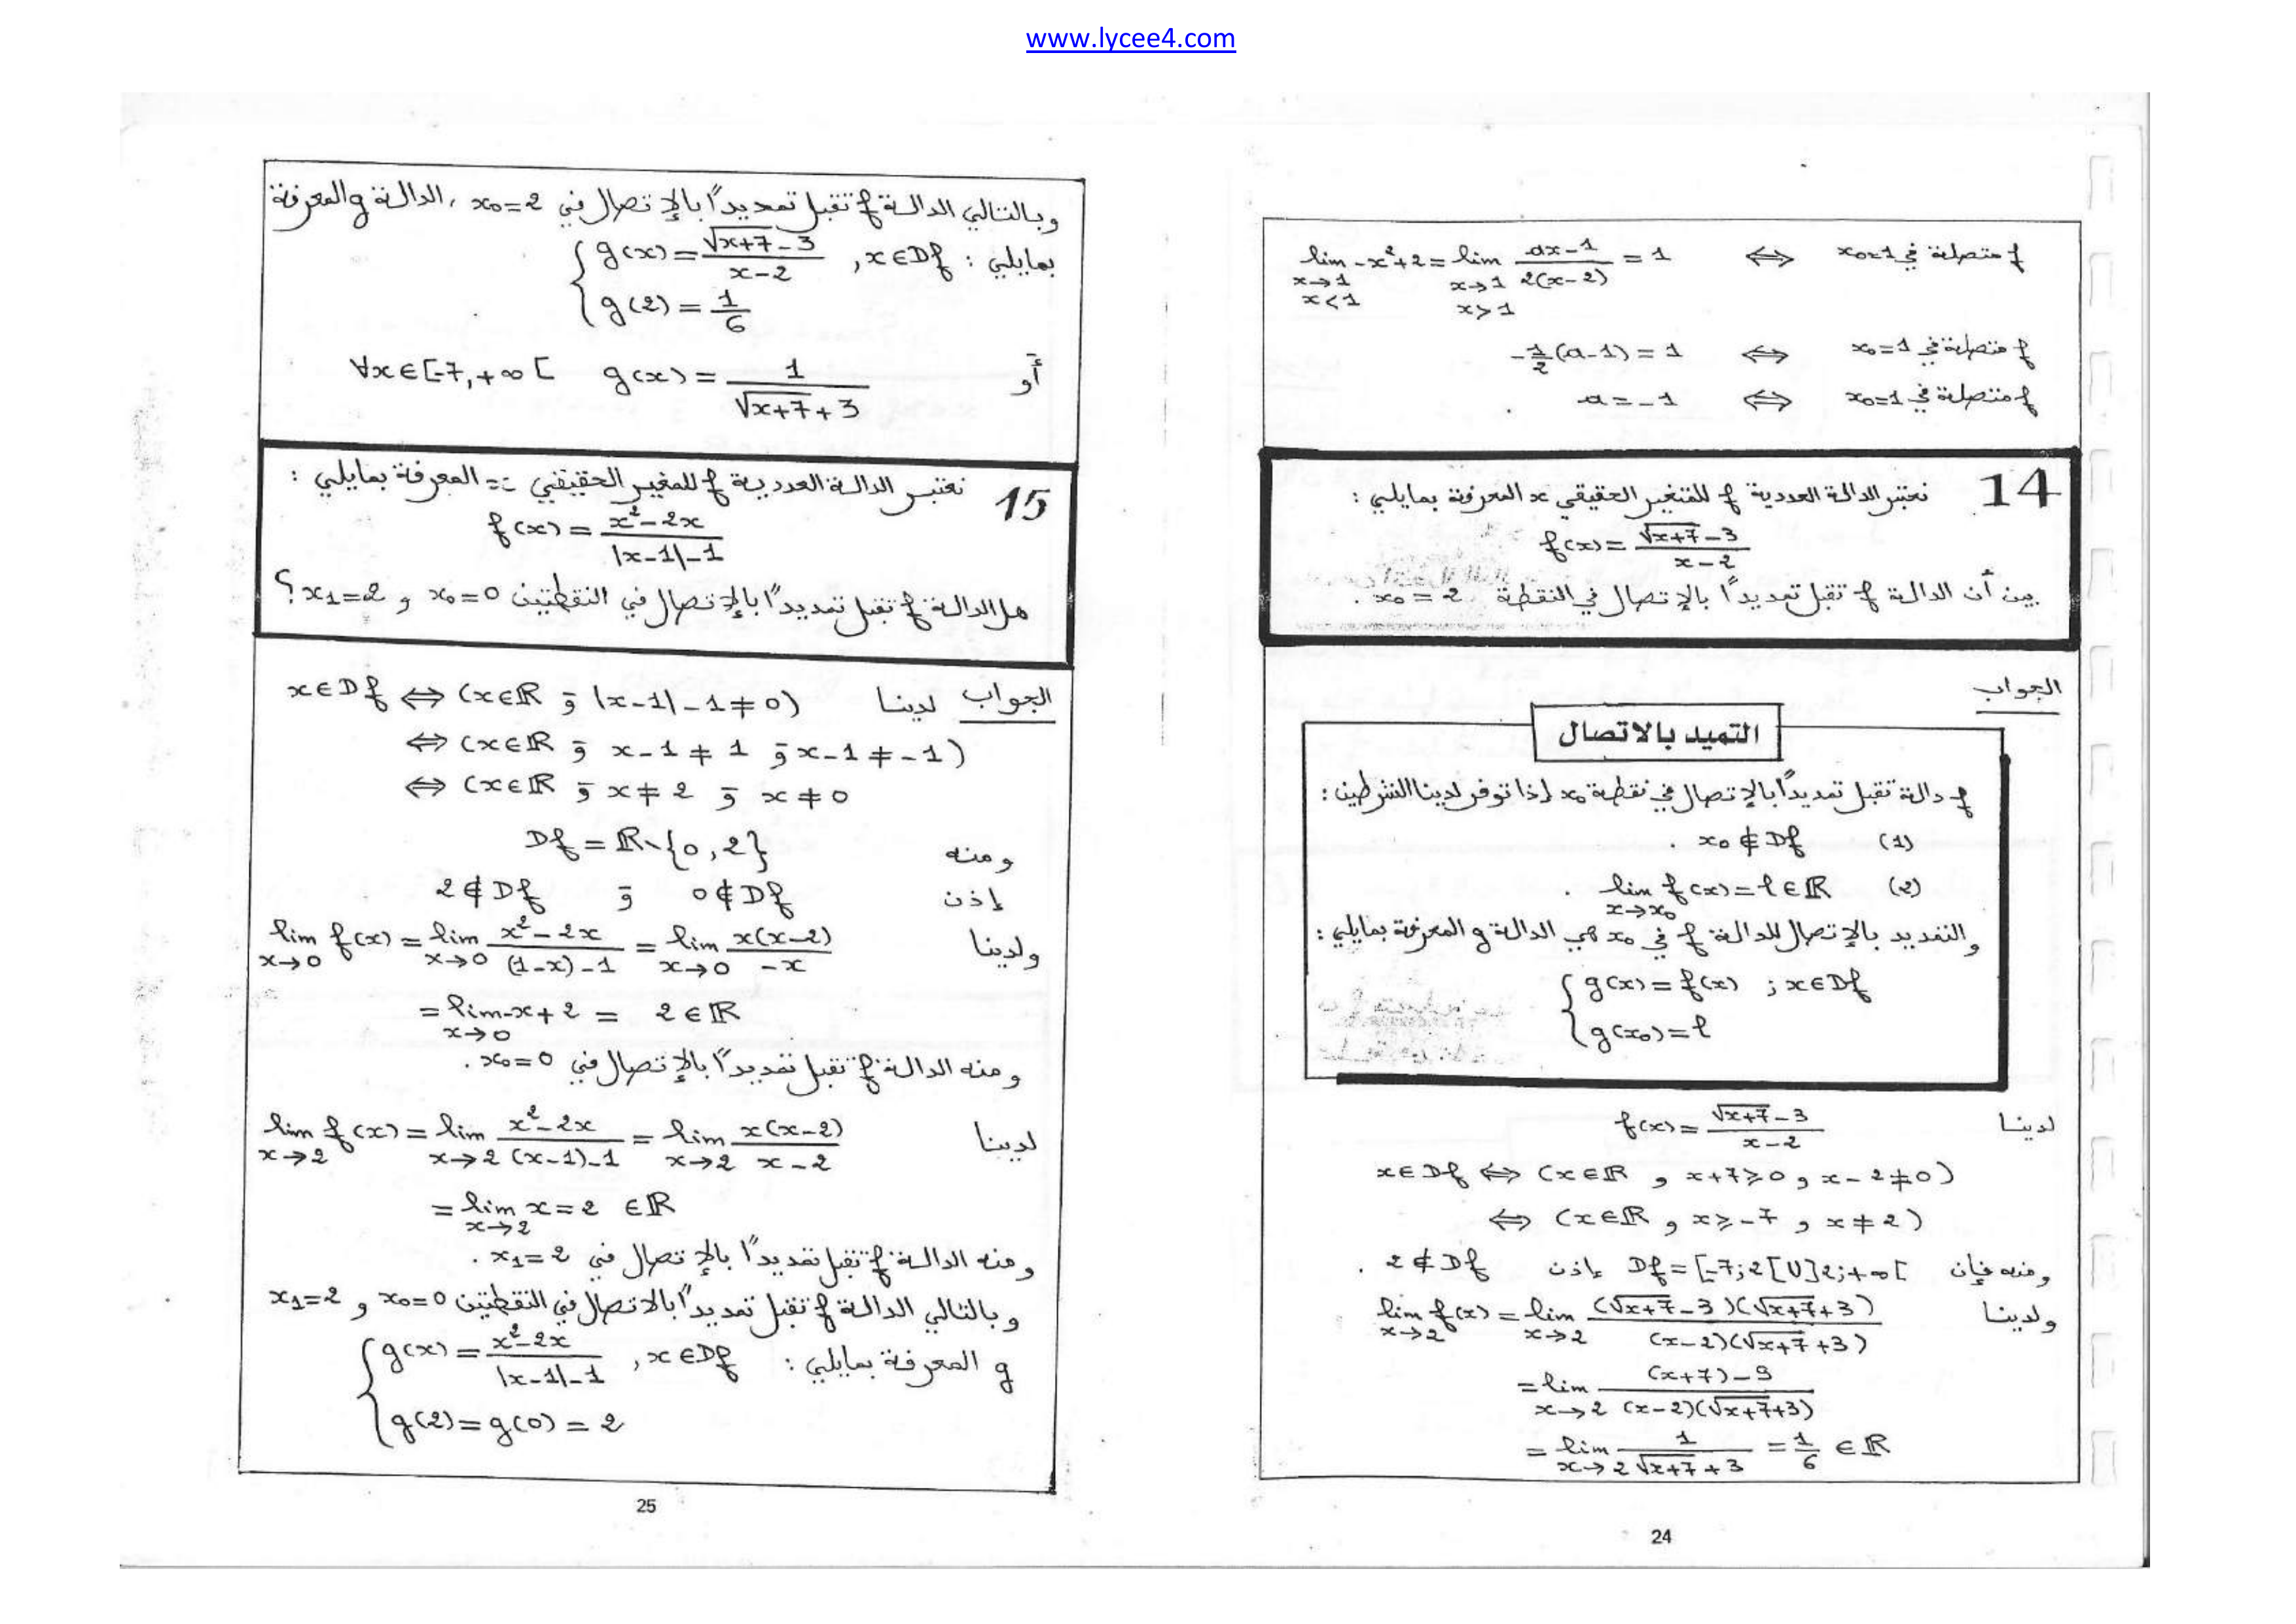 www.lycee4.com
f متصلة في x₀=1 ⇔ lim_{x→1, x<1} -x²+2 = lim_{x→1, x>1} (ax-1)/(2(x-2)) = 1
f متصلة في x₀=1 ⇔ -1/2(a-1) = 1
f متصلة في x₀=1 ⇔ a = -1 .
14 نعتبر الدالة العددية f للمتغير الحقيقي x المعرفة بمايلي :
f(x) = (√(x+7) - 3)/(x-2)
بين أن الدالة f تقبل تمديداً بالإتصال في النقطة x₀ = 2 .
الجواب
التميد بالاتصال
f دالة تقبل تمديداً بالإتصال في نقطة x₀ إذا توفر لدينا الشرطين :
(1) x₀ ∉ Df .
(2) lim_{x→x₀} f(x) = l ∈ ℝ .
والتمديد بالإتصال للدالة f في x₀ هي الدالة g المعرفة بمايلي :
{ g(x) = f(x) ; x ∈ Df
g(x₀) = l
لدينا f(x) = (√(x+7) - 3)/(x-2)
x ∈ Df ⇔ (x ∈ ℝ و x+7 ⩾ 0 و x-2 ≠ 0)
⇔ (x ∈ ℝ و x ⩾ -7 و x ≠ 2)
ومنه فإن Df = [-7;2[ U ]2;+∞[ إذن 2 ∉ Df .
ولدينا lim_{x→2} f(x) = lim_{x→2} (√(x+7) - 3)(√(x+7) + 3)/((x-2)(√(x+7) + 3))
= lim_{x→2} ((x+7) - 9)/((x-2)(√(x+7)+3))
= lim_{x→2} 1/(√(x+7) + 3) = 1/6 ∈ ℝ
24
وبالتالي الدالة f تقبل تمديداً بالإتصال في x₀=2 ، الدالة g المعرفة
بمايلي : { g(x) = (√(x+7) - 3)/(x-2) , x ∈ Df
g(2) = 1/6
أو ∀x ∈ [-7,+∞[ g(x) = 1/(√(x+7) + 3)
15 نعتبر الدالة العددية f للمغير الحقيقي x المعرفة بمايلي :
f(x) = (x² - 2x)/(|x-1| - 1)
هل الدالة f تقبل تمديداً بالإتصال في النقطتين x₀=0 و x₁=2 ؟
الجواب لدينا x ∈ Df ⇔ (x ∈ ℝ و |x-1| - 1 ≠ 0)
⇔ (x ∈ ℝ و x-1 ≠ 1 و x-1 ≠ -1)
⇔ (x ∈ ℝ و x ≠ 2 و x ≠ 0
ومنه Df = ℝ∖{0,2}
إذن 0 ∉ Df و 2 ∉ Df
ولدينا lim_{x→0} f(x) = lim_{x→0} (x² - 2x)/((1-x) - 1) = lim_{x→0} x(x-2)/(-x)
= lim_{x→0} -x+2 = 2 ∈ ℝ
ومنه الدالة f تقبل تمديداً بالإتصال في x₀=0 .
لدينا lim_{x→2} f(x) = lim_{x→2} (x² - 2x)/((x-1) - 1) = lim_{x→2} x(x-2)/(x-2)
= lim_{x→2} x = 2 ∈ ℝ
ومنه الدالة f تقبل تمديداً بالإتصال في x₁=2 .
وبالتالي الدالة f تقبل تمديداً بالاتصال في النقطتين x₀=0 و x₁=2
g المعرفة بمايلي : { g(x) = (x² - 2x)/(|x-1| - 1) , x ∈ Df
g(2) = g(0) = 2
25